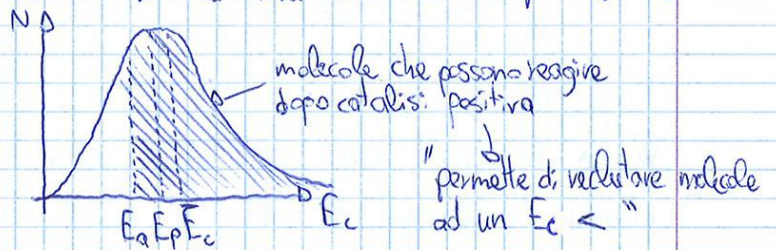 N
molecole che possono reagire
dopo catalisi positiva
"permette di reclutare molecole
ad un Ec < "
Ea Ep E̅c
Ec